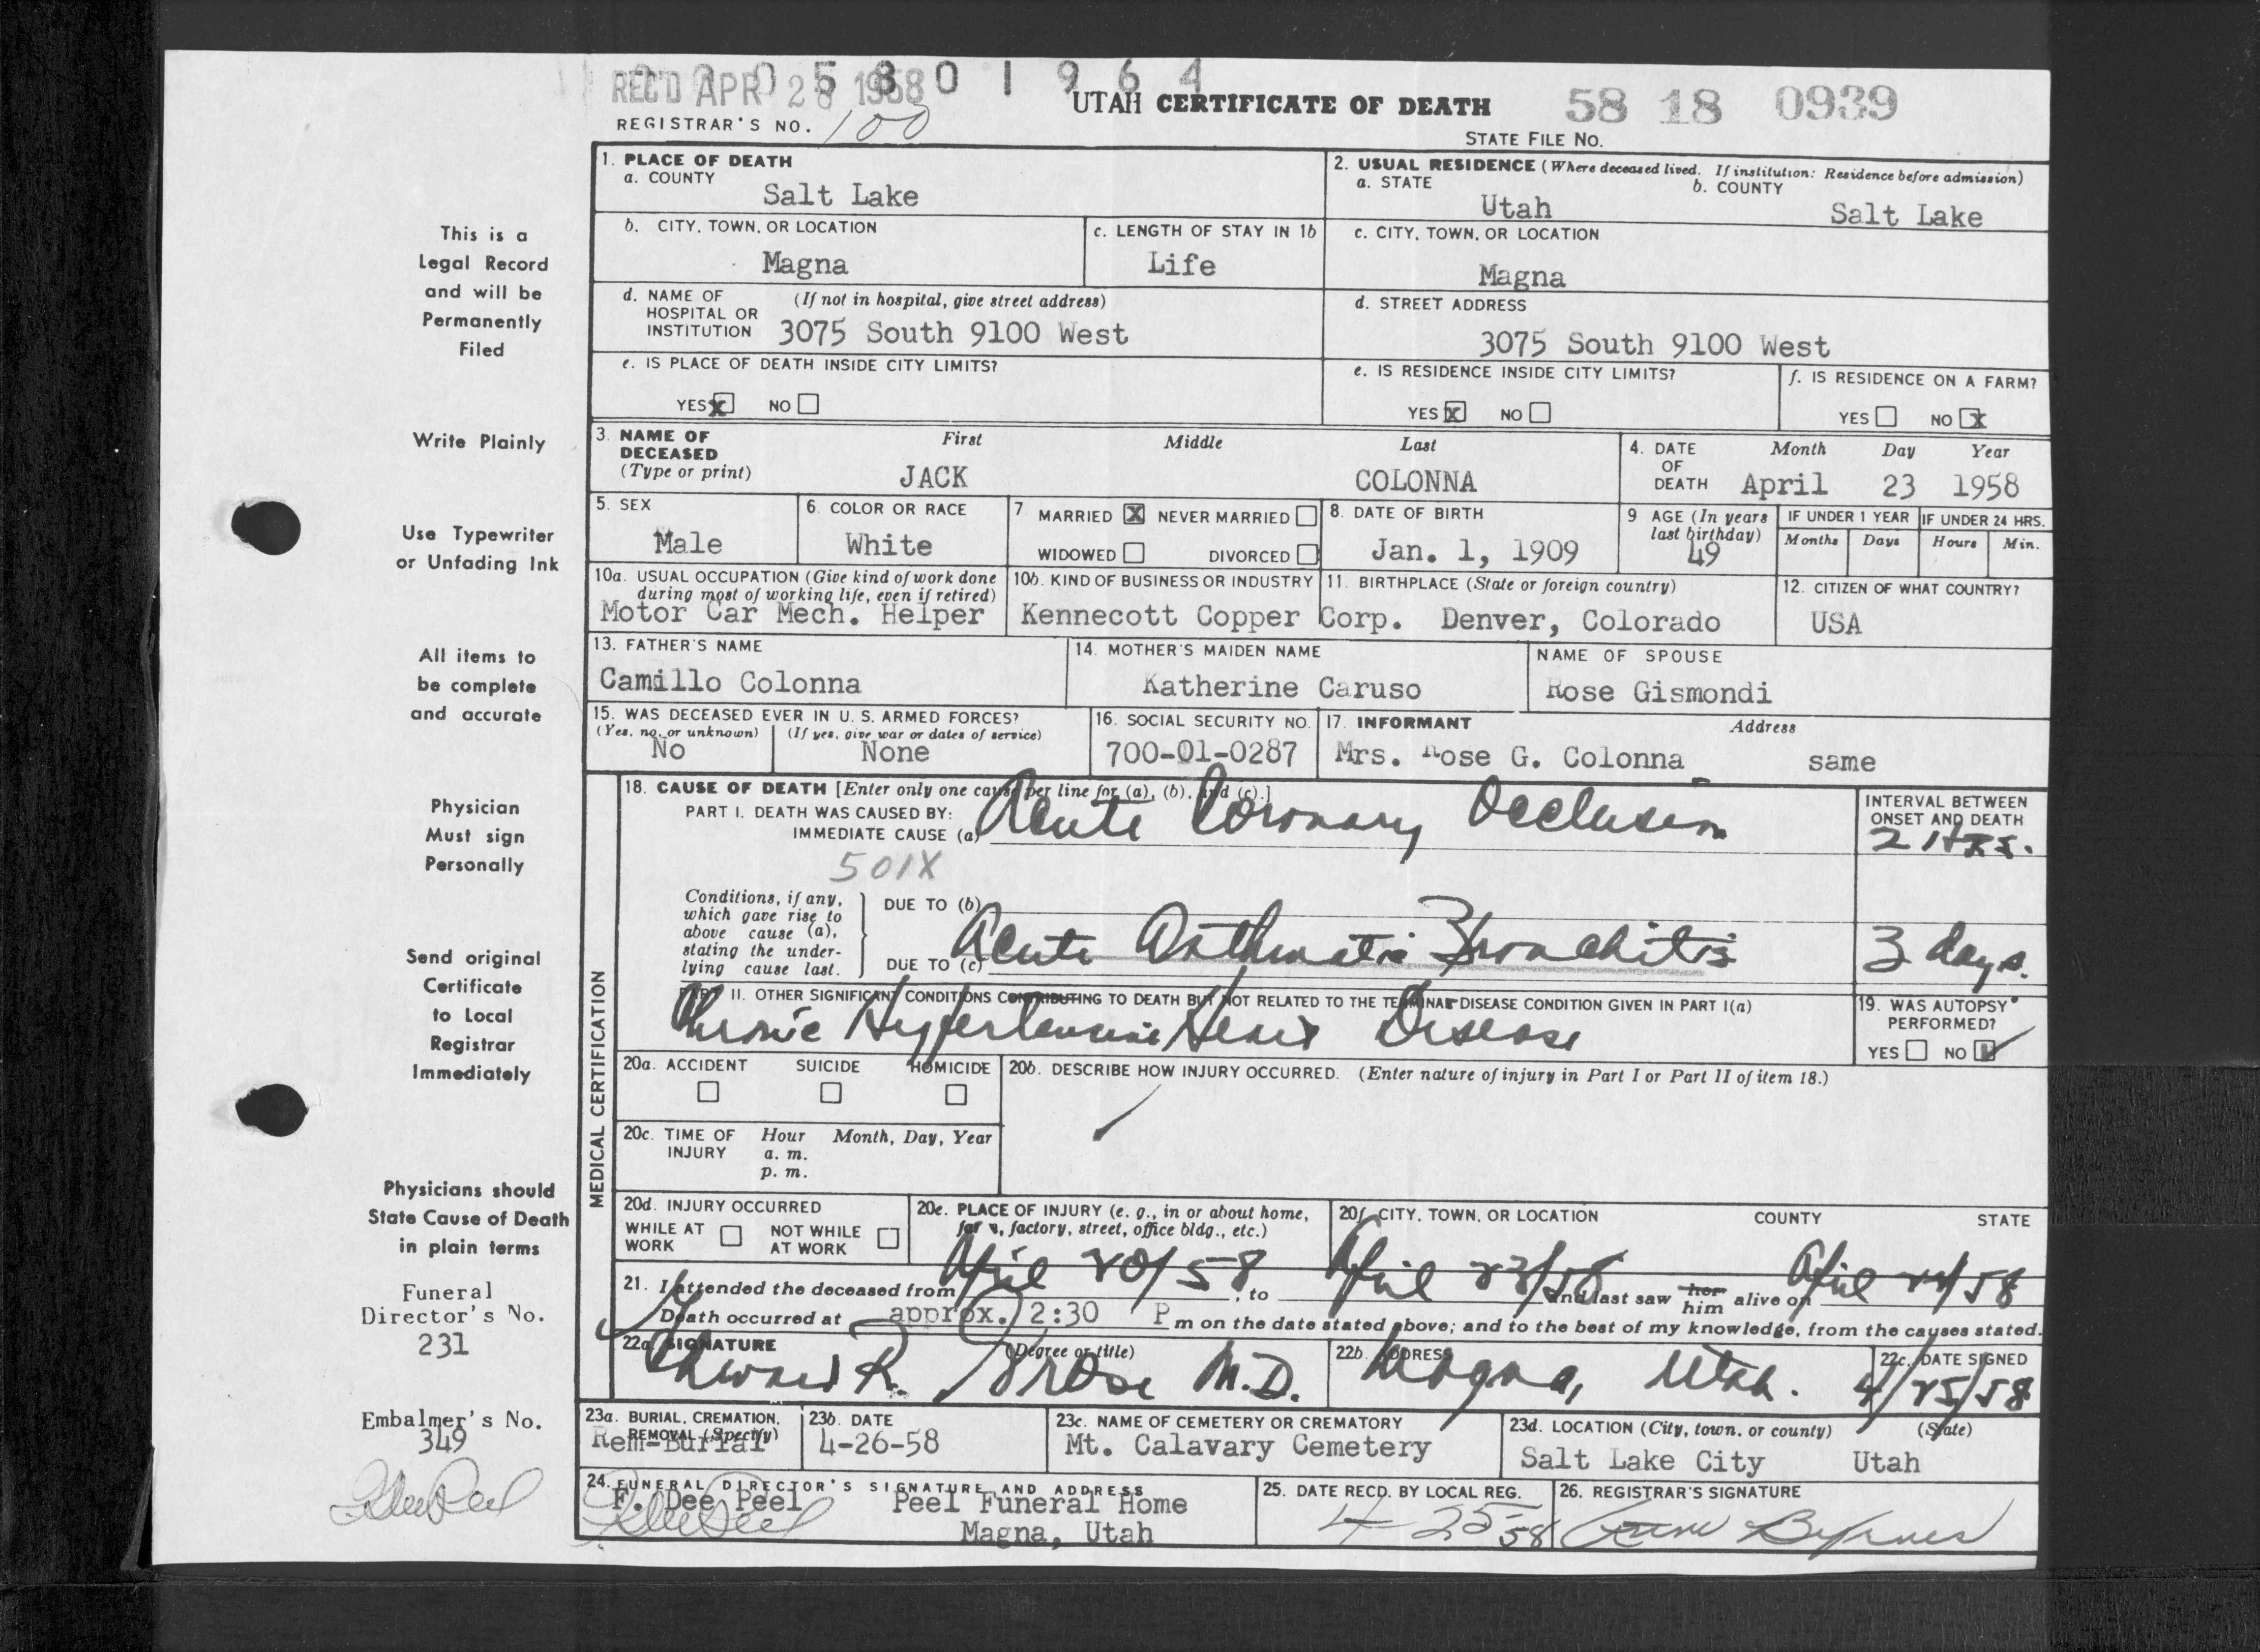 0 0 0 5 8 0 1 9 6 4
REC'D APR 28 1958
UTAH CERTIFICATE OF DEATH 58 18 0939
REGISTRAR'S NO. 100
STATE FILE NO.
This is a
Legal Record
and will be
Permanently
Filed
Write Plainly
Use Typewriter
or Unfading Ink
All items to
be complete
and accurate
Physician
Must sign
Personally
Send original
Certificate
to Local
Registrar
Immediately
Physicians should
State Cause of Death
in plain terms
Funeral
Director's No.
231
Embalmer's No.
349
1. PLACE OF DEATH
a. COUNTY
Salt Lake
2. USUAL RESIDENCE (Where deceased lived. If institution: Residence before admission)
a. STATE b. COUNTY
Utah Salt Lake
b. CITY, TOWN, OR LOCATION
Magna
c. LENGTH OF STAY IN 1b
Life
c. CITY, TOWN, OR LOCATION
Magna
d. NAME OF (If not in hospital, give street address)
HOSPITAL OR
INSTITUTION 3075 South 9100 West
d. STREET ADDRESS
3075 South 9100 West
e. IS PLACE OF DEATH INSIDE CITY LIMITS?
YES X NO
e. IS RESIDENCE INSIDE CITY LIMITS?
YES X NO
f. IS RESIDENCE ON A FARM?
YES NO X
3. NAME OF First Middle Last
DECEASED
(Type or print) JACK COLONNA
4. DATE Month Day Year
OF
DEATH April 23 1958
5. SEX
Male
6. COLOR OR RACE
White
7 MARRIED X NEVER MARRIED
WIDOWED DIVORCED
8. DATE OF BIRTH
Jan. 1, 1909
9 AGE (In years
last birthday)
49
IF UNDER 1 YEAR IF UNDER 24 HRS.
Months Days Hours Min.
10a. USUAL OCCUPATION (Give kind of work done
during most of working life, even if retired)
Motor Car Mech. Helper
10b. KIND OF BUSINESS OR INDUSTRY
Kennecott Copper Corp.
11. BIRTHPLACE (State or foreign country)
Denver, Colorado
12. CITIZEN OF WHAT COUNTRY?
USA
13. FATHER'S NAME
Camillo Colonna
14. MOTHER'S MAIDEN NAME
Katherine Caruso
NAME OF SPOUSE
Rose Gismondi
15. WAS DECEASED EVER IN U. S. ARMED FORCES?
(Yes, no, or unknown) (If yes, give war or dates of service)
No None
16. SOCIAL SECURITY NO.
700-01-0287
17. INFORMANT Address
Mrs. Rose G. Colonna same
MEDICAL CERTIFICATION
18. CAUSE OF DEATH [Enter only one cause per line for (a), (b), and (c).]
PART I. DEATH WAS CAUSED BY:
IMMEDIATE CAUSE (a) Acute Coronary Occlusion
501X
INTERVAL BETWEEN
ONSET AND DEATH
2 Hrs.
Conditions, if any,
which gave rise to
above cause (a),
stating the under-
lying cause last.
DUE TO (b)
DUE TO (c) Acute Asthmatic Bronchitis 3 days.
PART II. OTHER SIGNIFICANT CONDITIONS CONTRIBUTING TO DEATH BUT NOT RELATED TO THE TERMINAL DISEASE CONDITION GIVEN IN PART I(a)
Chronic Hypertensive Heart Disease
19. WAS AUTOPSY
PERFORMED?
YES NO
20a. ACCIDENT SUICIDE HOMICIDE
20b. DESCRIBE HOW INJURY OCCURRED. (Enter nature of injury in Part I or Part II of item 18.)
20c. TIME OF Hour Month, Day, Year
INJURY a. m.
p. m.
20d. INJURY OCCURRED
WHILE AT NOT WHILE
WORK AT WORK
20e. PLACE OF INJURY (e. g., in or about home,
farm, factory, street, office bldg., etc.)
20f. CITY, TOWN, OR LOCATION COUNTY STATE
21. I attended the deceased from April 20/58, to April 23/58 and last saw her him alive on April 24/58
Death occurred at approx. 2:30 P m on the date stated above; and to the best of my knowledge, from the causes stated.
22a. SIGNATURE (Degree or title)
Edward R. M.D.
22b. ADDRESS
Magna, Utah.
22c. DATE SIGNED
4/25/58
23a. BURIAL, CREMATION,
REMOVAL (Specify)
Rem-Burial
23b. DATE
4-26-58
23c. NAME OF CEMETERY OR CREMATORY
Mt. Calavary Cemetery
23d. LOCATION (City, town, or county) (State)
Salt Lake City Utah
24. FUNERAL DIRECTOR'S SIGNATURE AND ADDRESS
F. Dee Peel Peel Funeral Home
Magna, Utah
25. DATE RECD. BY LOCAL REG.
4-25-58
26. REGISTRAR'S SIGNATURE
Byrnes